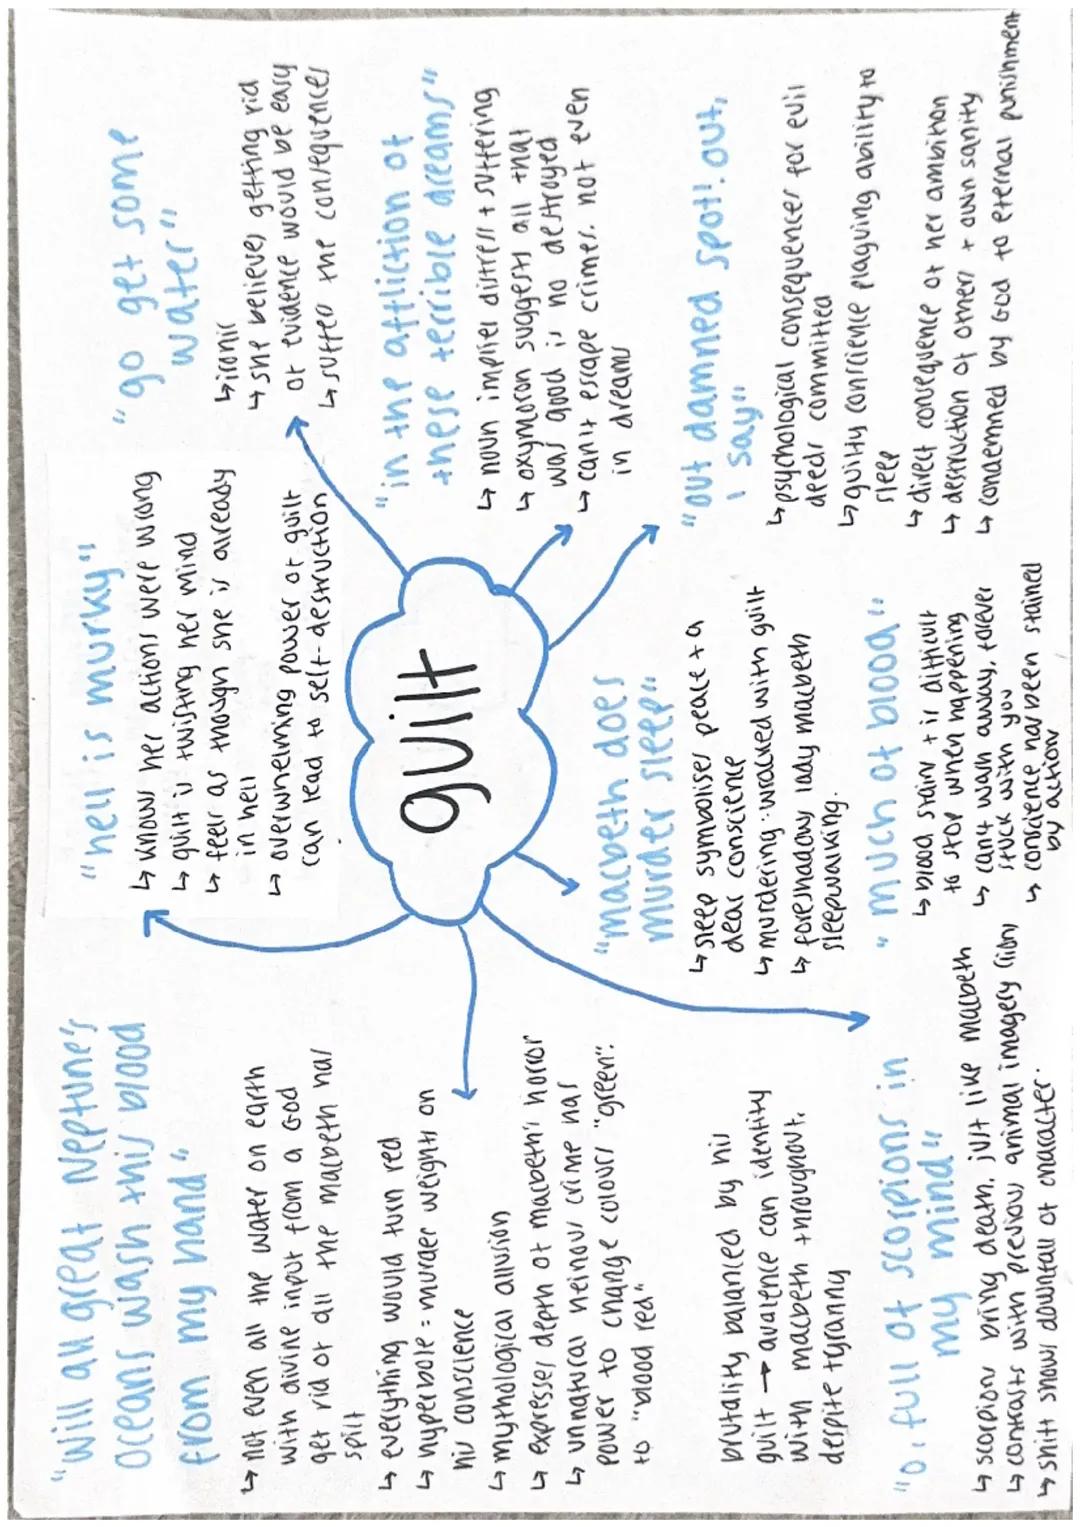 "will all great Neptune's
oceans wash this blood
from my hand"
↳ not even all the water on earth
with divine input from a God
get rid of all the macbeth has
spilt
↳ everything would turn red
↳ hyperbole = murder weights on
his conscience
↳ mythological allusion
↳ expresses depth of macbeth's horror
↳ unnatural heinous crime has
power to change colours "green".
to "blood red"
brutality balanced by his
guilt → avalence can identity
with macbeth throughout.
despite tyranny
"o, full of scorpions in
my mind"
↳ scorpions bring death. just like macbeth
↳ contrasts with previous animal imagery (lion)
↳ shift shows downfall of character.
"hell is murky"
↳ knows her actions were wrong
↳ guilt is twisting her mind
↳ feels as though she is already
in hell
↳ overwhelming power of guilt
can lead to self-destruction
guilt
"macbeth does
murder sleep"
↳ sleep symbolises peace + a
clear conscience
↳ murdering: wracked with guilt
↳ foreshadows lady macbeth
sleepwalking.
"much of blood"
↳ blood stains + is difficult
to stop when happening
↳ can't wash away, forever
stuck with you
↳ conscience has been stained
by action
"go get some
water"
↳ ironic
↳ she believes getting rid
of evidence would be easy
↳ suffers the consequences
"in the affliction of
these terrible dreams"
↳ noun implies distress + suffering
↳ oxymoron suggests all that
was good is no destroyed
↳ can't escape crimes. not even
in dreams
"out damned spot! out,
I say"
↳ psychological consequences for evil
deeds committed
↳ guilty conscience plaguing ability to
sleep
↳ direct consequence of her ambition
↳ destruction of others + own sanity
↳ condemned by God to eternal punishment